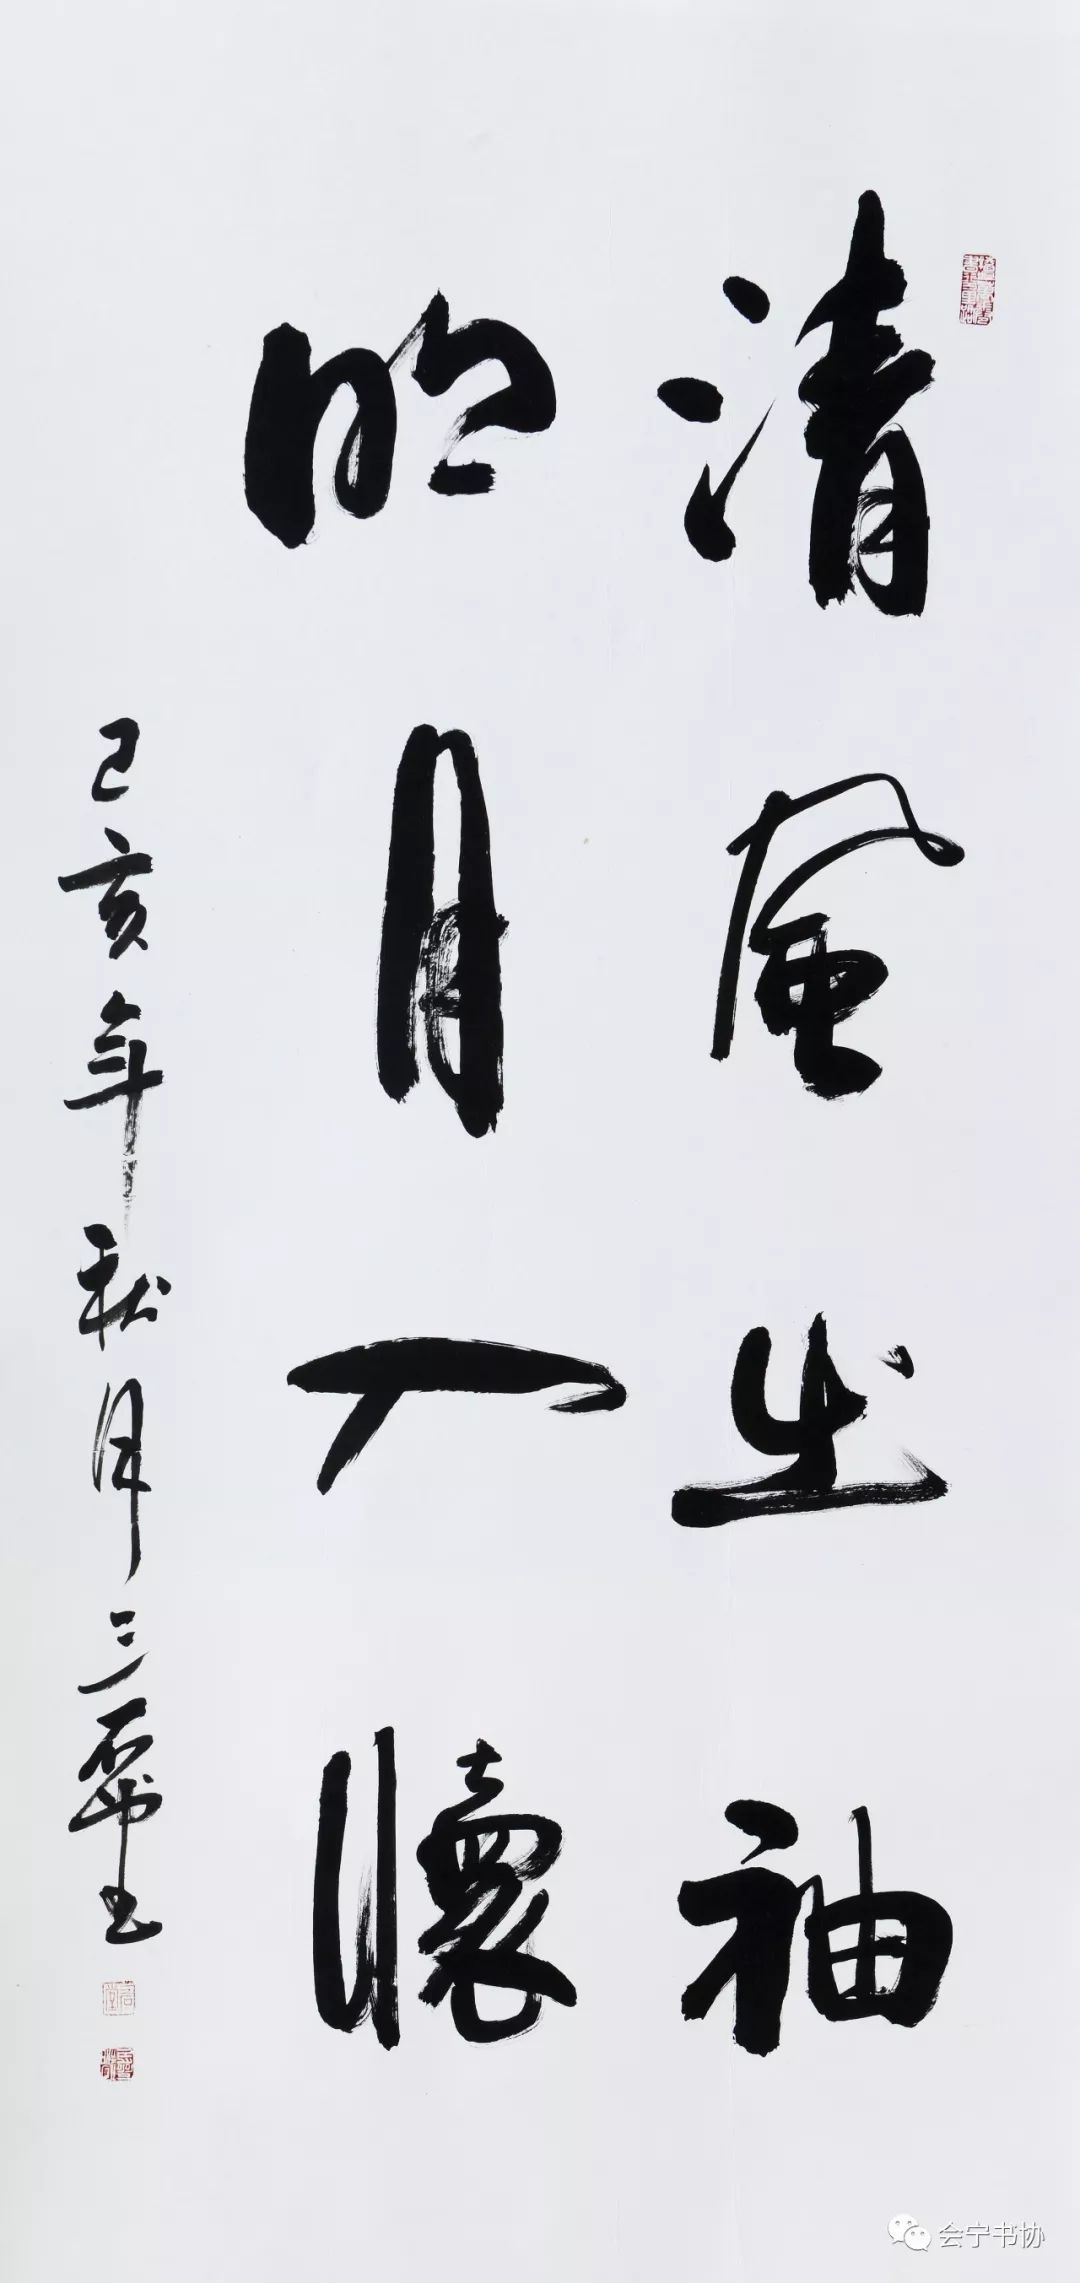 清風出袖
明月入懷
己亥年秋月三
书
会宁书协